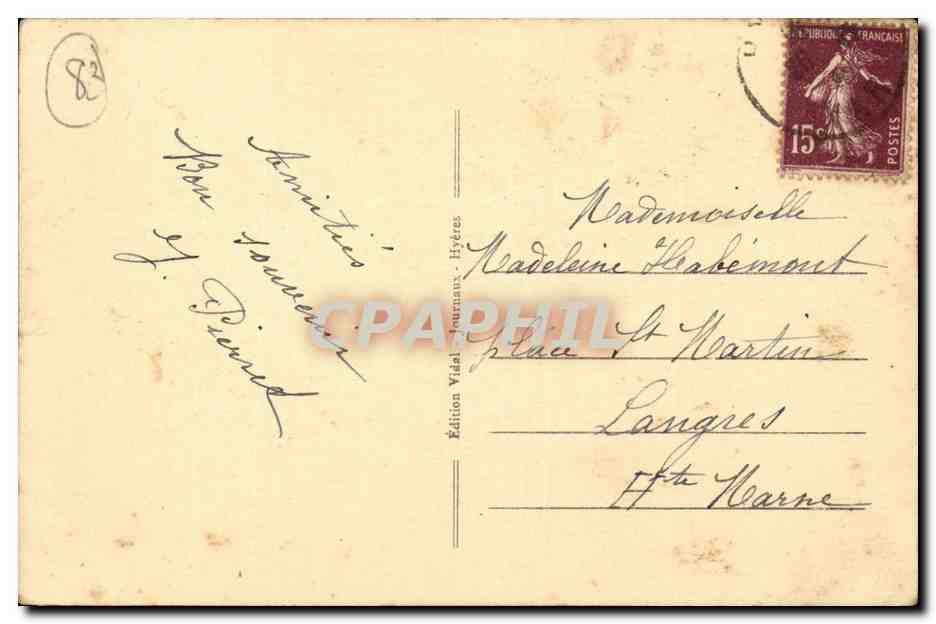 83
Amitiés
Bon souvenir
J. Pierret
Édition Vidal - Journaux - Hyères
RÉPUBLIQUE FRANÇAISE
15c
POSTES
Mademoiselle
Madeleine Habémont
place St Martin
Langres
Hte Marne
CPAPHIL